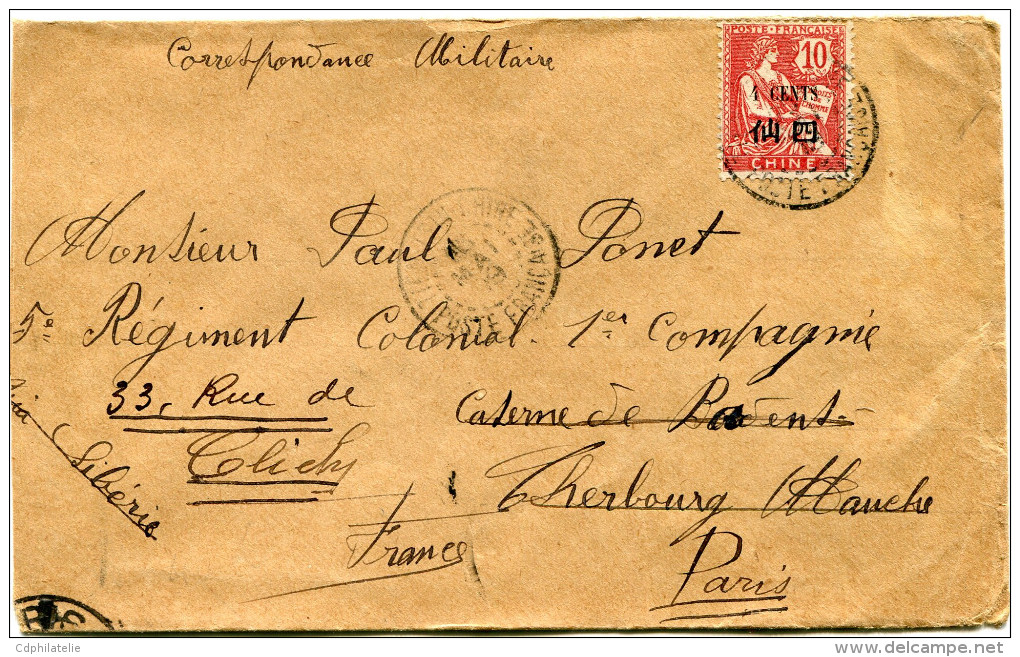 Correspondance Militaire
POSTE FRANÇAISE
10
DROITS DE L'HOMME
4 CENTS
仙四
CHINE
POSTE FRANÇAISE
Monsieur Paul Ponet
POSTE FRANÇAISE
5e Régiment Colonial. 1er Compagnie
33, Rue de Caserne de
Clichy
Cherbourg Manche
via Sibérie
France
Paris
Cdphilatelie
delcampe.net